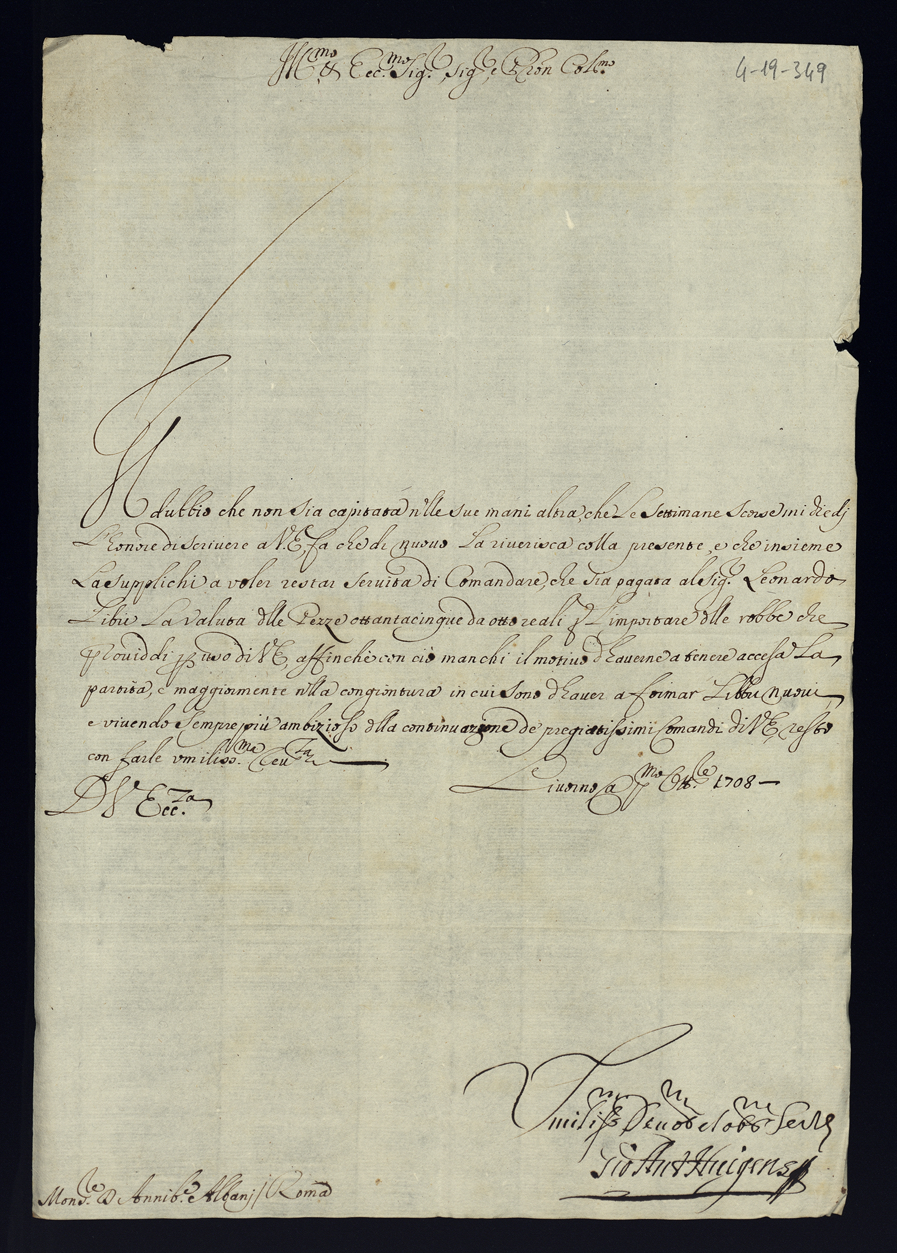 Ill.mo & Ecc.mo Sig.r Sig.r e Pron Col.mo
4-19-349
Il dubbio che non sia capitata n'lle sue mani altra, che Le Settimane scorse mi diedi
L'honore di scrivere a V.E, fa che di nuovo La riverisca colla presente, e che insieme
La supplichi a voler restar servita di Comandare, che sia pagata al Sig.r Leonardo
Libri La valuta d'lle Pezze ottantacinque da otto reali p L'importare d'lle robbe che
providdi p uso di V.E, affinche con cio manchi il motivo d'haverne a tenere accesa La
partita, e maggiormente n'lla congiontura in cui sono d'haver a formar Libri nuovi
e vivendo sempre più ambizioso d'lla continuazione de pregiatissimi Comandi di V.E, resto
con farle umiliss.ma Reu.za
D V Ecc.za
Livorno a p.mo Ott.bre 1708
Umiliss.mo Devot.mo et obb.mo Serv.
Gio Ant Huigens
Mons.re D Annib.le Albanj / Roma